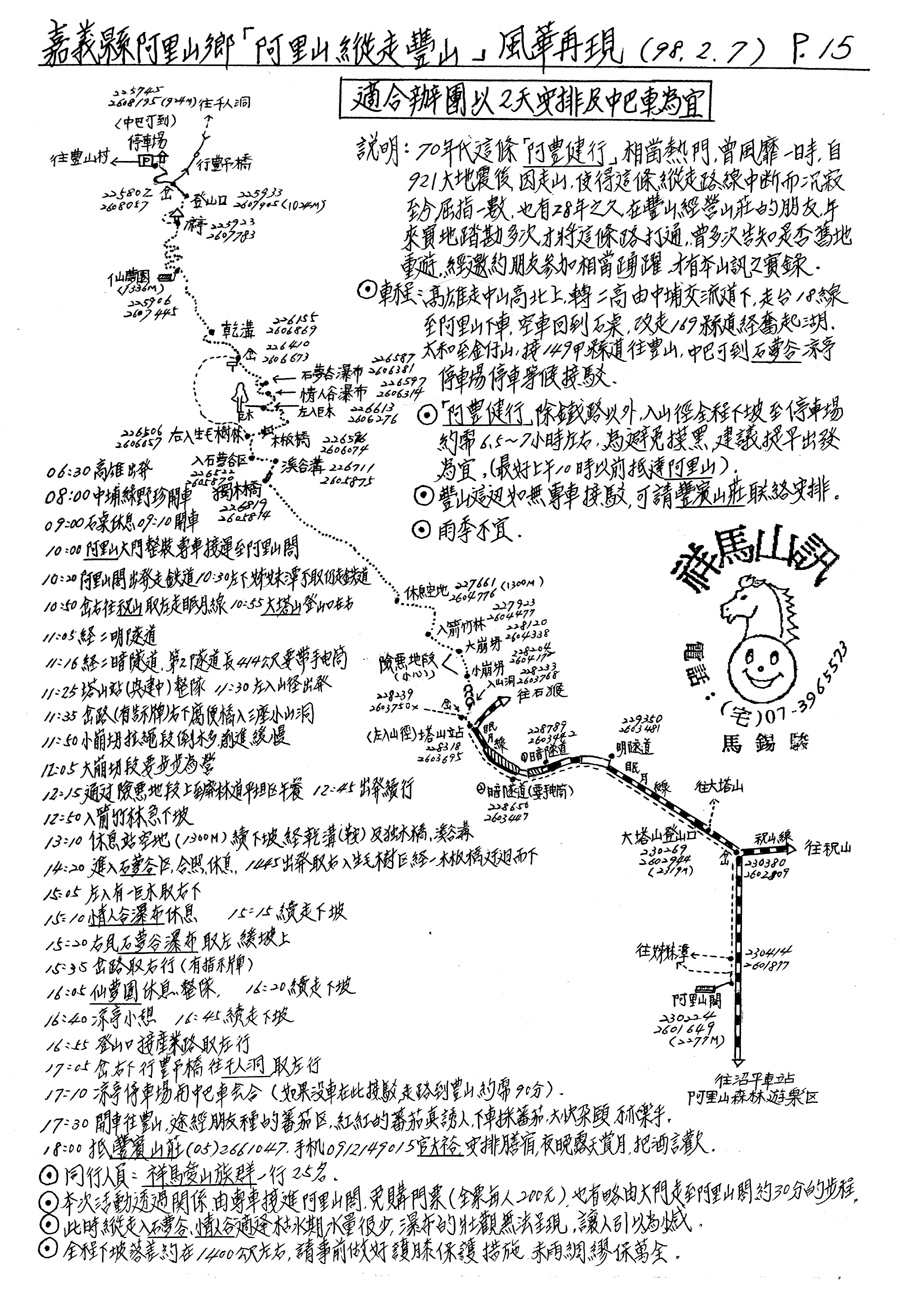 嘉義縣阿里山鄉「阿里山縱走豐山」風華再現 (98.2.7) P.15
適合辦團以2天安排及中巴車為宜
說明：70年代這條「阿豐健行」相當熱門，曾風靡一時，自
921大地震後因走山，使得這條縱走路線中斷而沉寂
至今屈指一數，也有28年之久，在豐山經營山莊的朋友，年
來實地踏勘多次才將這條路打通，曾多次告知是否舊地
重遊，經邀約朋友參加相當踴躍，才有本山訊之實錄．
⊙車程：高雄走中山高北上，轉二高由中埔交流道下，走台18線
至阿里山下車，空車回到石桌，改走169縣道經奮起湖．
太和至金付山，接149甲縣道往豐山，中巴可到石夢谷涼亭
停車場停車等候接駁．
⊙「阿豐健行」除鐵路以外，入山徑全程下坡至停車場
約需6.5~7小時左右，為避免摸黑，建議提早出發
為宜，(最好上午10時以前抵達阿里山)．
⊙豐山這邊如無專車接駁，可請豐賓山莊聯絡安排．
⊙雨季不宜．
225745
2608195 (924M) 往千人洞
(中巴可到)
停車場
往豐山村 P
行豐千橋
225802
2608057
岔
登山口 225933
2607905 (1024M)
涼亭 225923
2607783
仙夢園
(1336M)
225906
2607445
乾溝 226155
2606869
岔 226410
2606673
石夢谷瀑布 226587
2606381
情人谷瀑布 226597
2606314
巨木 左入巨木 226613
2606276
226506
2606657
右入生毛樹林
木板橋 226596
2606074
入石夢谷區
226522
2605870
溪谷溝 226711
2605875
獨木橋
226819
2605814
休息空地 227661 (1300M)
2604776
入箭竹林 227923
2604477
大崩塌 228120
2604338
險惡地段
(小心)
小崩塌 228204
2604179
入山洞 228233
2603768
228239
2603750
岔
往石猴
(左入山徑) 塔山車站
228318
2603695
眠月線
228789
2603462
①暗隧道
②暗隧道(要手電筒)
228650
2603447
229350
2603481
明隧道
眠月線
往大塔山
大塔山登山口
230269
2602944
(2319M)
岔
祝山線
往祝山
230380
2602809
往姊妹潭
230414
2601877
阿里山閣
230224
2601649
(2277M)
往沼平車站
阿里山森林遊樂區
祥馬山訊
電話：(宅)07-3965523
馬錫駿
06:30 高雄出發
08:00 中埔綠野珍開車
09:00 石桌休息 09:10 開車
10:00 阿里山大門整裝專車接運至阿里山閣
10:20 阿里山閣出發走鐵道 10:30 左下姊妹潭不取仍走鐵道
10:50 岔右往祝山取左走眠月線 10:55 大塔山登山口在右
11:05 經二明隧道
11:16 經二暗隧道，第2隧道長414公尺要帶手電筒
11:25 塔山站(興建中)整隊 11:30 左入山徑出發
11:35 岔路(有告示牌)右下腐便橋入三座小山洞
11:50 小崩塌拉繩段倒木多前進緩慢
12:05 大崩塌段要步步為營
12:15 通過險惡地段上舊林道平坦區午餐 12:45 出發續行
12:50 入箭竹林急下坡
13:10 休息站空地(1300M)續下坡，經乾溝及獨木橋，溪谷溝
14:20 進入石夢谷區，合照，休息，1445出發取右入生毛樹區經一木板橋迂迴而下
15:05 左入有一巨木取右下
15:10 情人谷瀑布休息 15:15 續走下坡
15:20 右見石夢谷瀑布取左緩坡上
15:35 岔路取右行(有指示牌)
16:05 仙夢園休息整隊， 16:20 續走下坡
16:40 涼亭小憩 16:45 續走下坡
16:55 登山口接產業路取左行
17:05 岔右下行豐千橋往千人洞取左行
17:10 涼亭停車場用中巴車會合 (如果沒車在此接駁走路到豐山約需90分)．
17:30 開車往豐山，途經朋友種的蕃茄區，紅紅的蕃茄真誘人，下車採蕃茄，大快朵頤，不亦樂乎．
18:00 抵豐賓山莊(05)2661047．手机0912149015宮大裕，安排膳宿，夜晚露天賞月，把酒言歡．
⊙同行人員：祥馬愛山族群一行25名．
⊙本次活動透過關係由專車接進阿里山閣，免購門票(全票每人200元)也有略由大門走至阿里山閣約30分的步程．
⊙此時縱走入石夢谷、情人谷適逢枯水期水量很少，瀑布的壯觀無法呈現，讓人引以為憾．
⊙全程下坡落差約在1400公尺左右，請事前做好護膝保護措施，未雨綢繆保萬全．